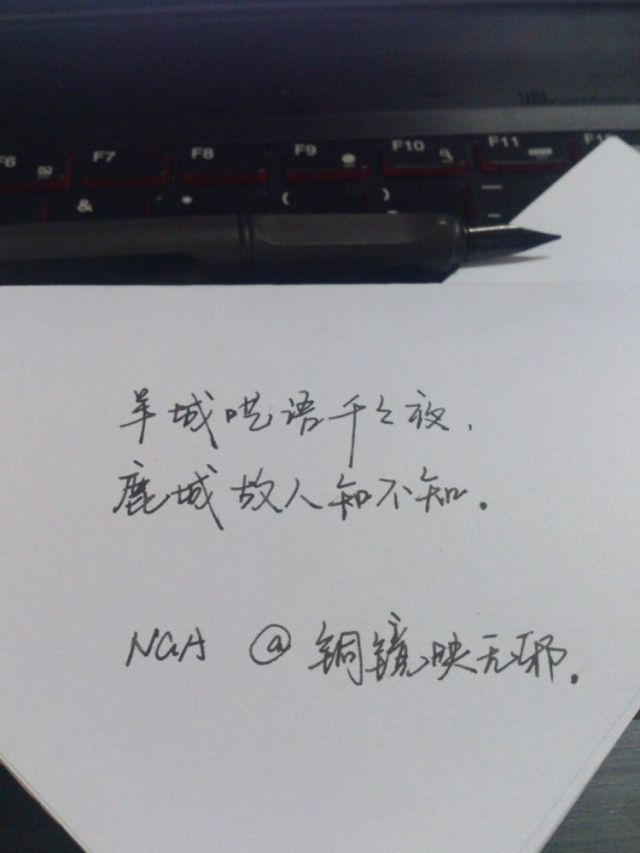 F6 F7 F8 F9 F10 F11
& * ( )
羊城呓语千々夜，
鹿城故人知不知。
NGA @铜镜映无邪。